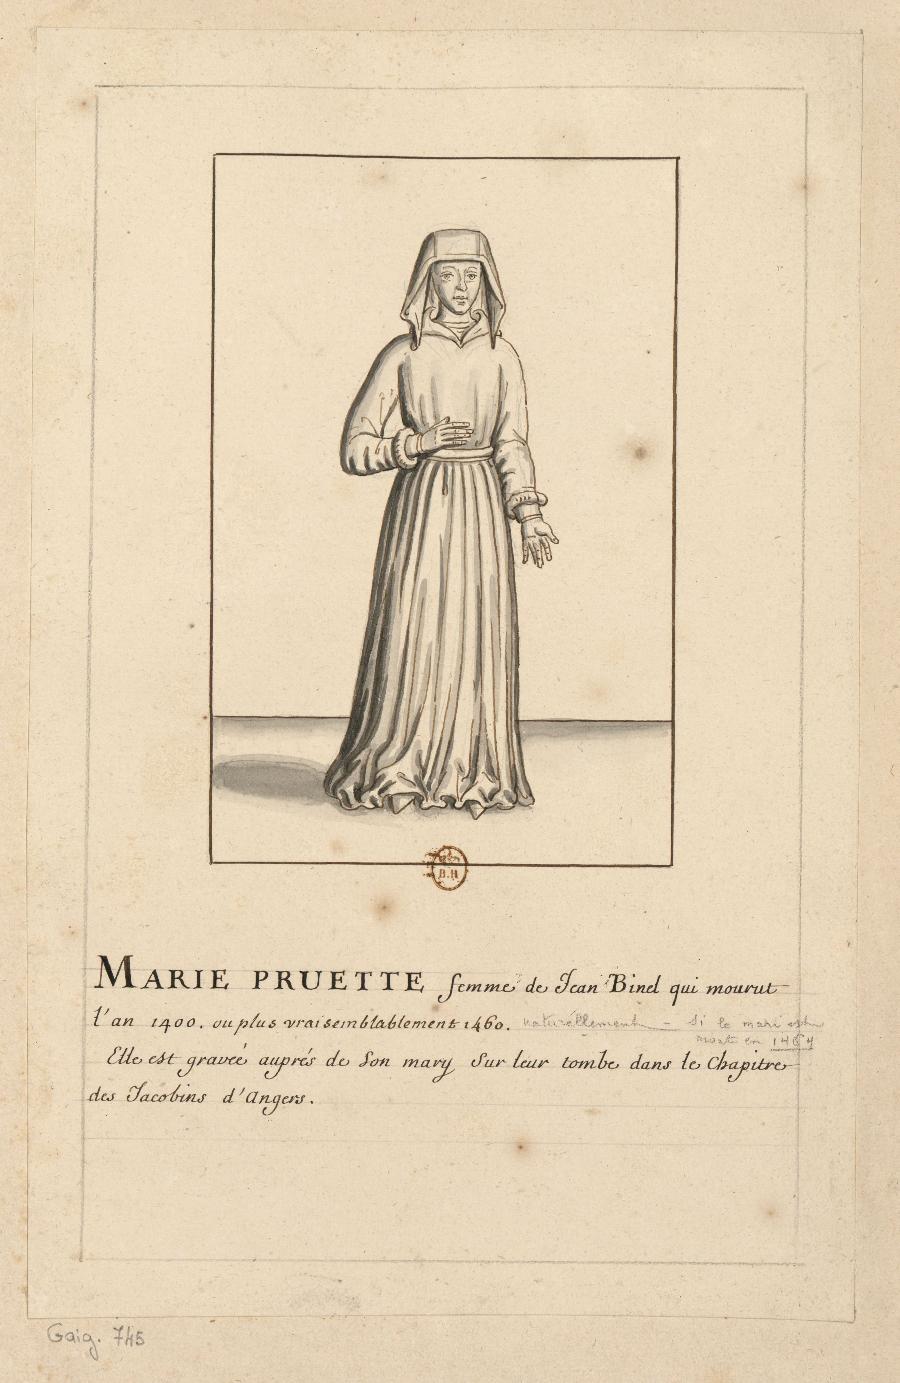 B.H
MARIE PRUETTE femme de Jean Binel qui mourut
l'an 1400. ou plus vraisemblablement 1460. naturellement – Si le mari est
mort en 1464
Elle est graveé auprés de Son mary Sur leur tombe dans le Chapitre
des Jacobins d'Angers.
Gaig. 745